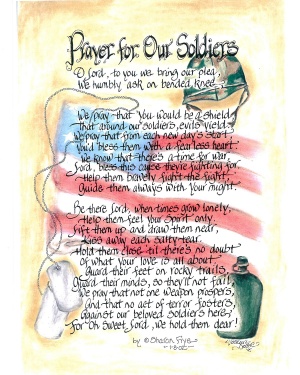 Prayer for Our Soldiers
O Lord, to you we bring our plea,
We humbly ask on bended knee,
We pray that You would be a shield
That around our soldiers, evils yield
We pray that from each new day's start
You'd bless them with a fearless heart.
We know that there's a time for war
Lord, bless this cause they're fighting for.
Help them bravely fight the fight,
Guide them always with Your might.
Be there Lord, when times grow lonely,
Help them feel Your Spirit only.
Lift them up and draw them near,
Kiss away each salty tear.
Hold them close til there's no doubt
Of what Your love is all about.
Guard their feet on rocky trails,
Guard their minds, so they'll not fail,
We pray that not one weapon prospers,
And that no act of terror fosters,
Against our beloved soldiers here,
For Oh Sweet Lord, we hold them dear!
by © Sharon Frye